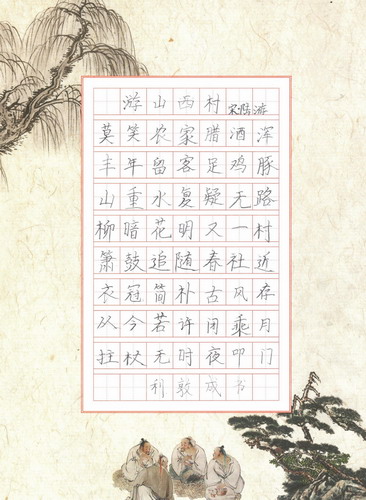 游山西村 宋陆游
莫笑农家腊酒浑
丰年留客足鸡豚
山重水复疑无路
柳暗花明又一村
箫鼓追随春社近
衣冠简朴古风存
从今若许闲乘月
拄杖无时夜叩门
利敦成书